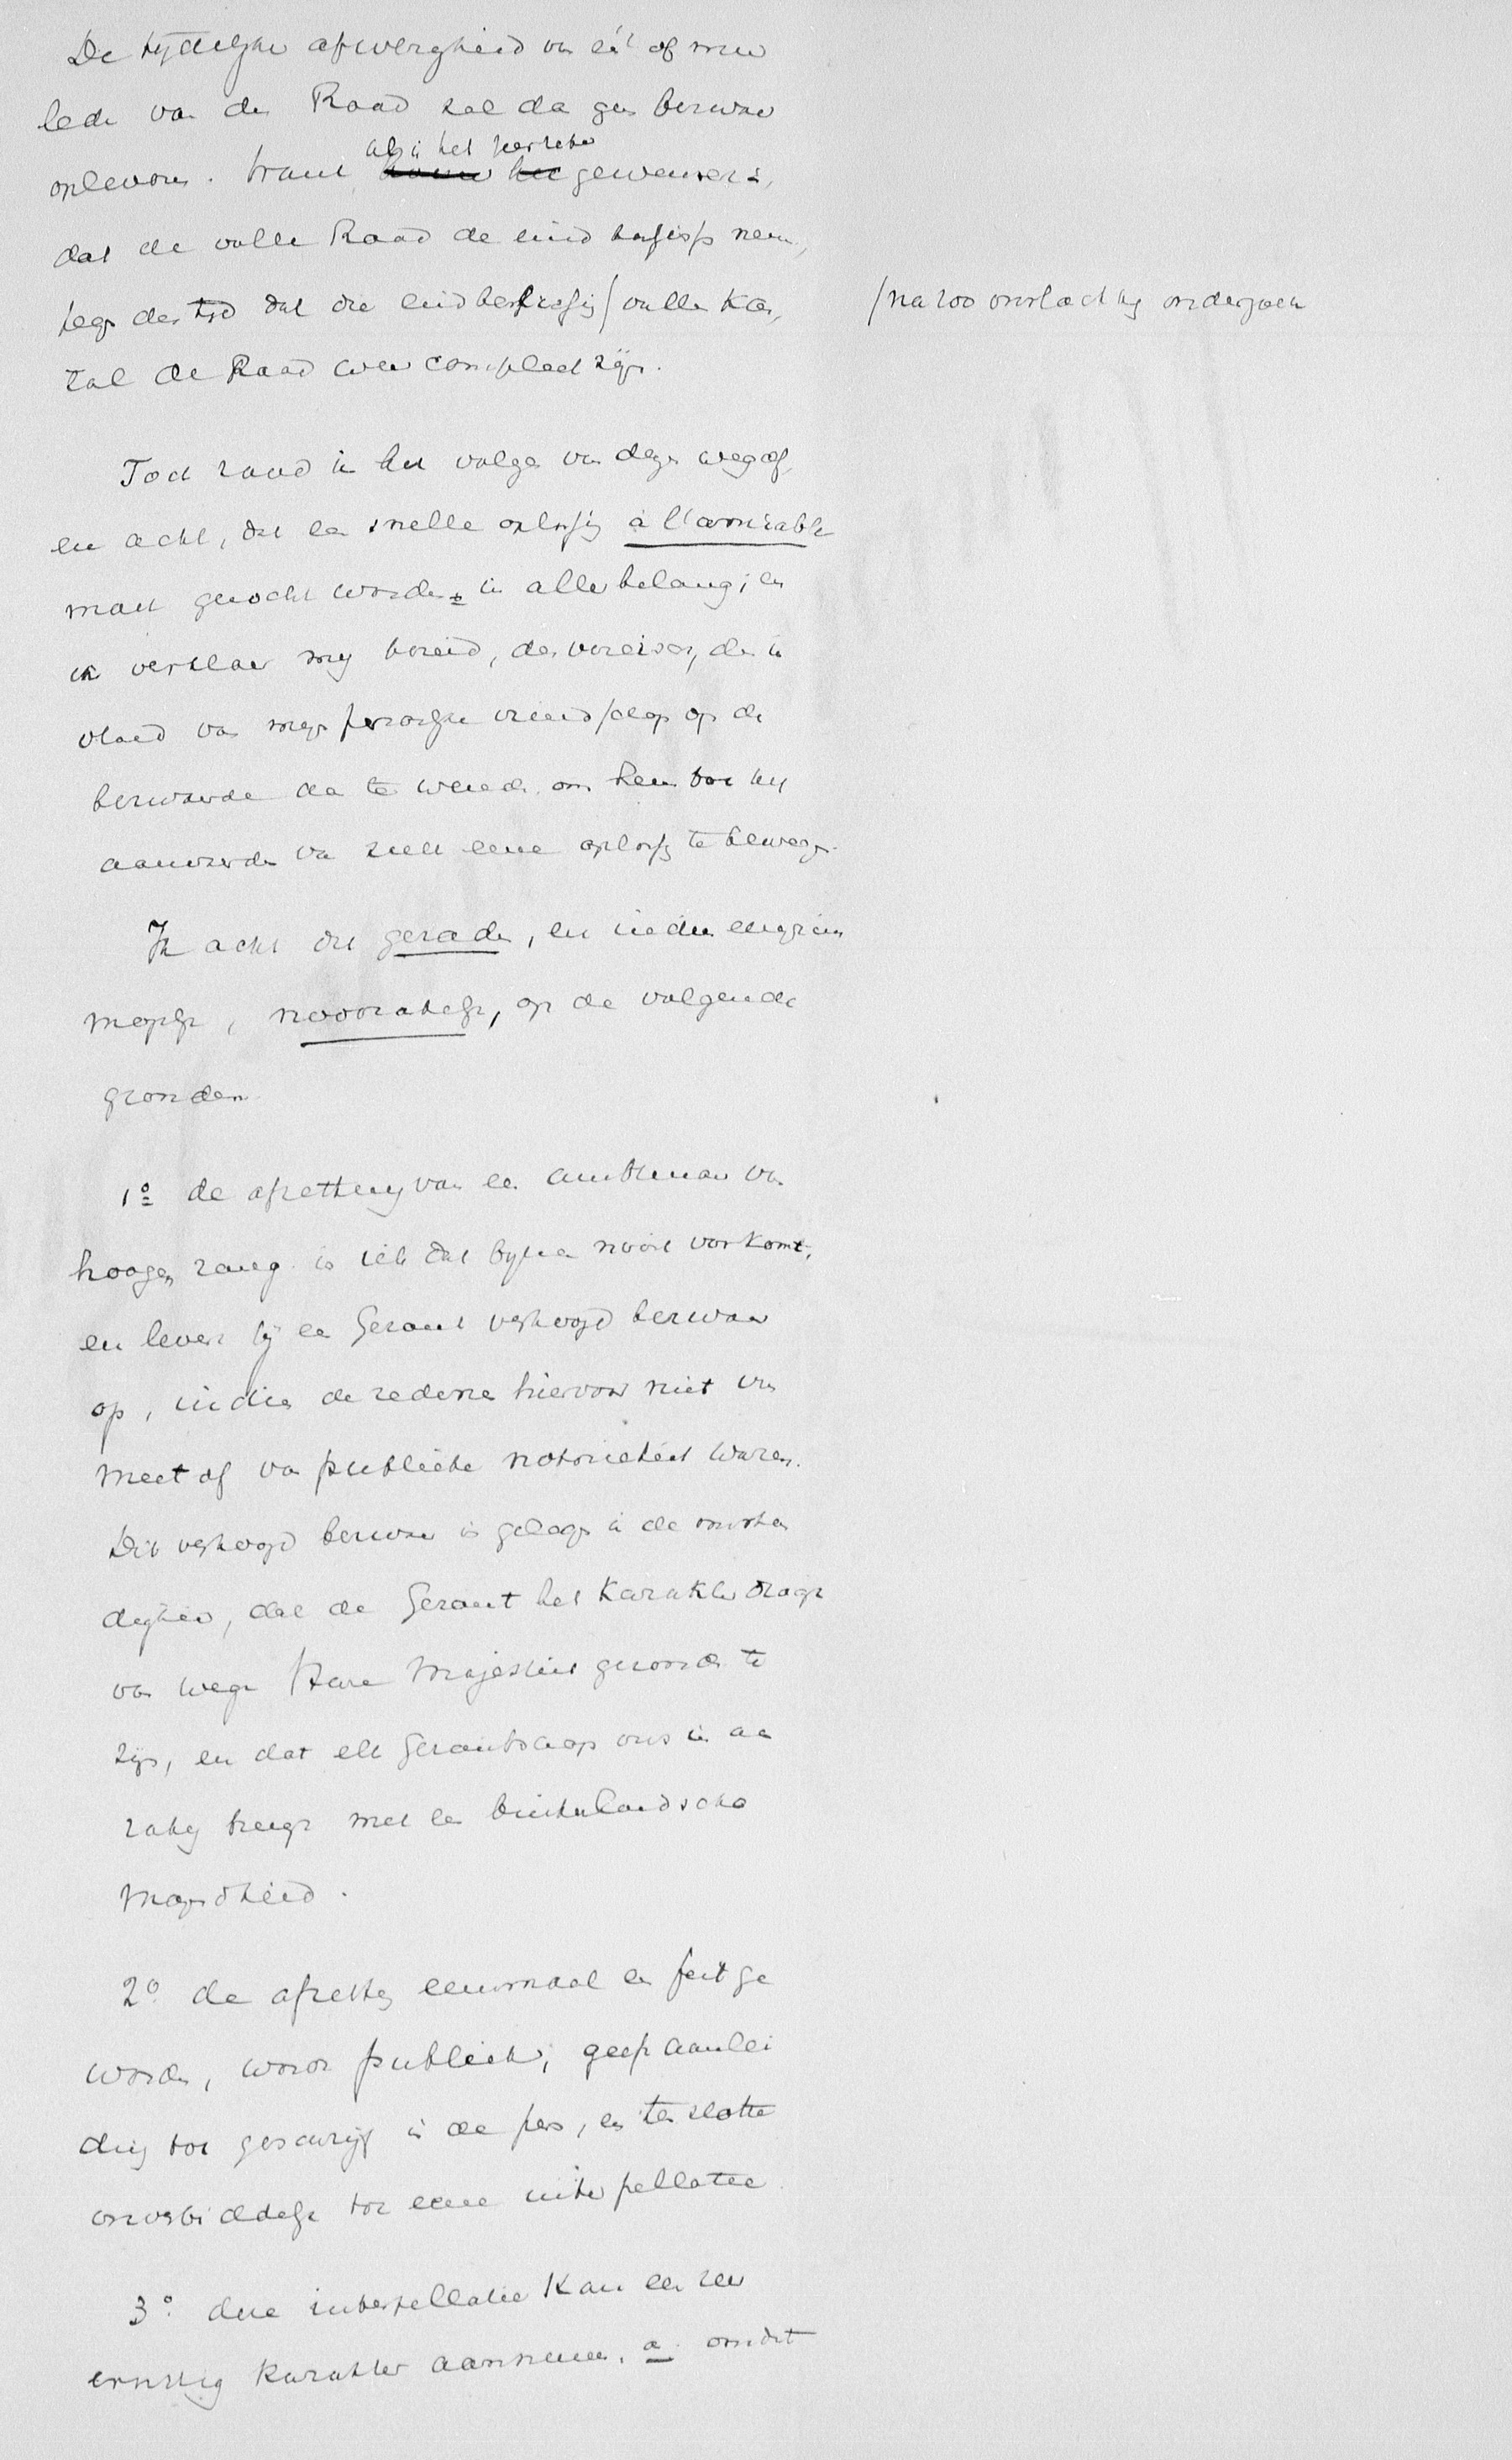 De tijdelijke afwezigheid van één of meer
leden van den Raad zal dan geen bezwaar
opleveren. Want als is het zeer zeker gewenscht,
dat de volle Raad de eindbeslissing neme,
tegen den tijd dat die eindbeslissing / vallen kan,
/ na zoo omslachtig onderzoek
zal de Raad weer compleet zijn.
Toch raad ik het volgen van dezen weg af,
en acht, dat een snelle oplossing à l'amiable
moet gezocht worden in aller belang; en
ik verklaar mij bereid, den vereischten
invloed van mijn persoonlijke vriendschap op de
bezwaarde aan te wenden om hem tot het
aanvaarden van zulk eene oplossing te bewegen.
Ik acht dit geraden, en indien eenigszins
mogelijk, noodzakelijk, op de volgende
gronden
1º de afzetting van een ambtenaar van
hoogen rang is iets dat bijna nooit voorkomt,
en levert bij een Gezant verhoogd bezwaar
op, indien de redenen hiervoor niet van
meet af van publieke notoriëteit waren.
Dit verhoogd bezwaar is gelegen in de omstan
digheid, dat de Gezant het karakter draagt
van wege Hare Majesteit gezonden te
zijn, en dat elk Gezantschap ons in aan
raking brengt met een buitenlandsche
Mogendheid.
2º. de afzetting eenmaal een feit ge
worden, wordt publiek; geeft aanlei
ding tot geschrijf in de pers, en ten slotte
onvermijdelijk tot eene interpellatie
3º. deze interpellatie kan een zeer
ernstig karakter aannemen, a. omdat